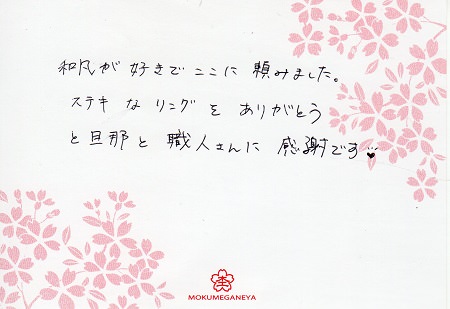 和風が好きでここに頼みました。
ステキなリングをありがとう
と旦那と職人さんに感謝です…♥
MOKUMEGANEYA